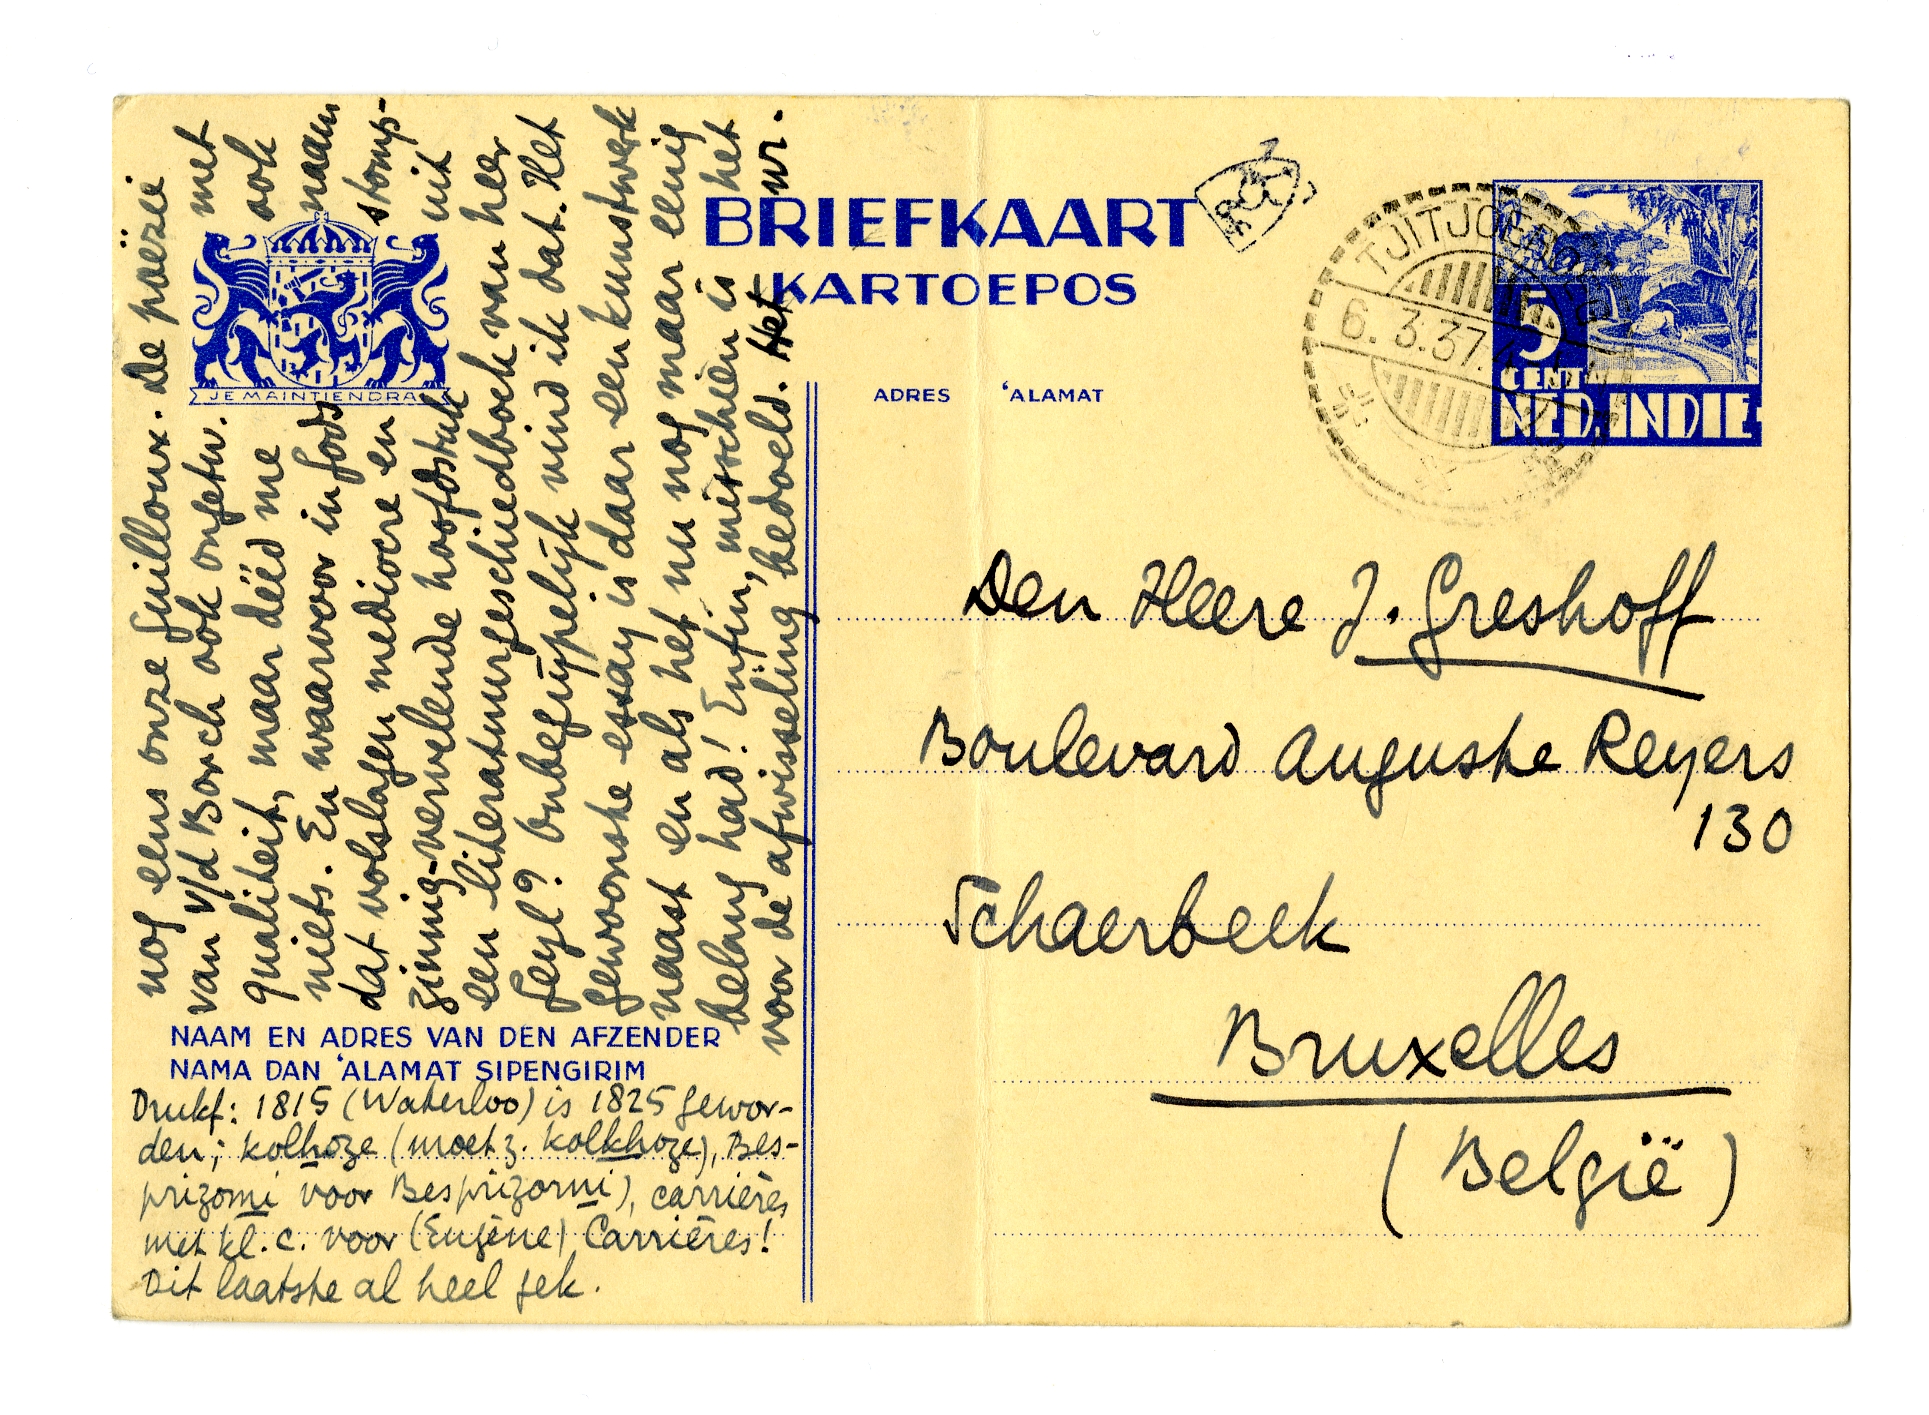 nog eens onze Guilloux. De poëzie
van v/d Borch ook ongetw. met
qualiteit, maar déed me ook
niets. En waarvoor in godsnaam
dat volslagen mediocre en stomp-
zinnig-vervelende hoofdstuk uit
een literatuurgeschiedboek van heer
Geyl? Onbegrijpelijk vind ik dat. Het
gewoonste essay is daar een kunstwerk
naast en als het nu nog maar eenig
belang had! Enfin, misschien is het
voor de afwisseling bedoeld. Het wr.
JE MAINTIENDRAI
NAAM EN ADRES VAN DEN AFZENDER
NAMA DAN 'ALAMAT SIPENGIRIM
Drukf: 1815 (Waterloo) is 1825 gewor-
den; kolhoze (moet z. kolkhoze), Bes-
prizomi voor Besprizorni), carrières
met kl. c. voor (Eugène) Carrières!
Dit laatste al heel gek.
BRIEFKAART
KARTOEPOS
ADRES 'ALAMAT
6.3.37.
5
CENT
NED. INDIE
Den Heere J. Greshoff
Boulevard Auguste Reyers
130
Schaerbeek
Bruxelles
(België)